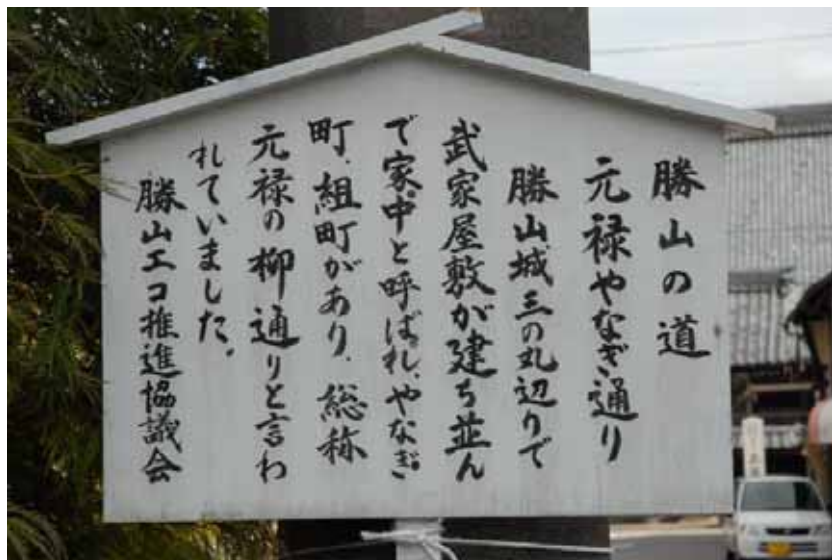 勝山の道
元禄やなぎ通り
勝山城三の丸辺りで
武家屋敷が建ち並ん
で家中と呼ばれ、やなぎ
町、組町があり、総称
元禄の柳通りと言わ
れていました。
勝山エコ推進協議会